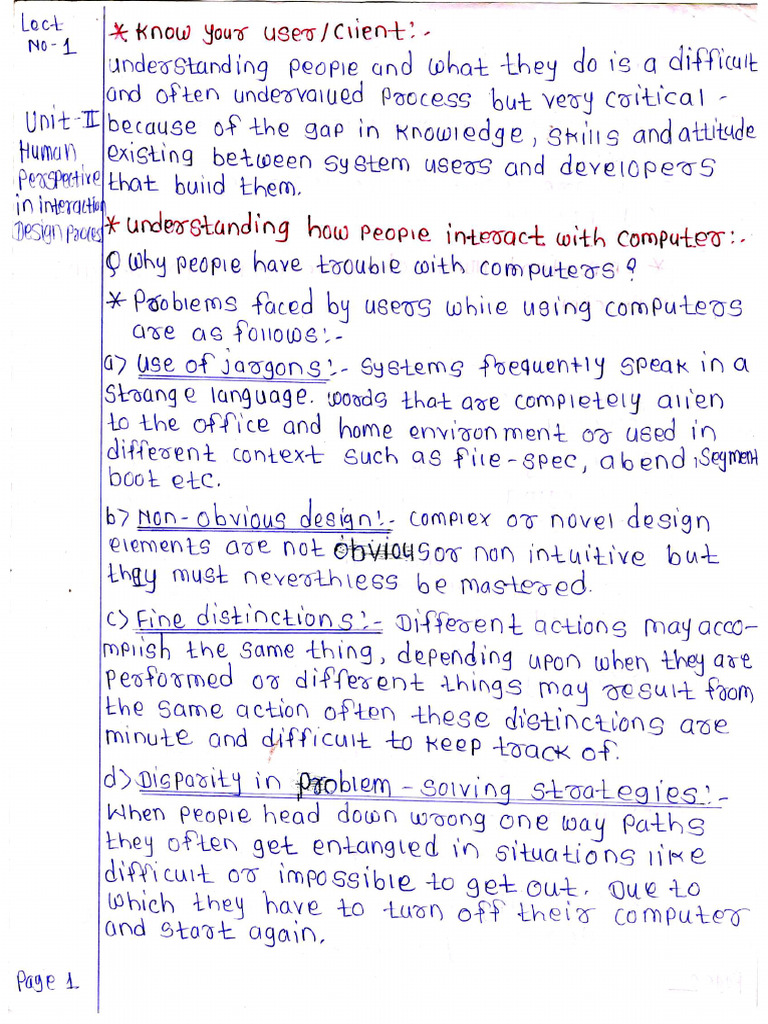 Lect
No-1
Unit-II
Human
Perspective
in interaction
Design Process
* Know your user/client:-
understanding people and what they do is a difficult
and often undervalued process but very critical -
because of the gap in knowledge, skills and attitude
existing between system users and developers
that build them.
* understanding how people interact with computer:-
Q Why people have trouble with computers?
* Problems faced by users while using computers
are as follows:-
a> use of jargons:- systems frequently speak in a
strange language. words that are completely alien
to the office and home environment or used in
different context such as file-spec, abend, segment
boot etc.
b> Non-obvious design:- complex or novel design
elements are not obvious or non intuitive but
they must neverthless be mastered.
c> Fine distinctions:- Different actions may acco-
mplish the same thing, depending upon when they are
performed or different things may result from
the same action often these distinctions are
minute and difficult to keep track of.
d> Disparity in problem-solving strategies:-
When people head down wrong one way paths
they often get entangled in situations like
difficult or impossible to get out. Due to
which they have to turn off their computer
and start again.
Page 1